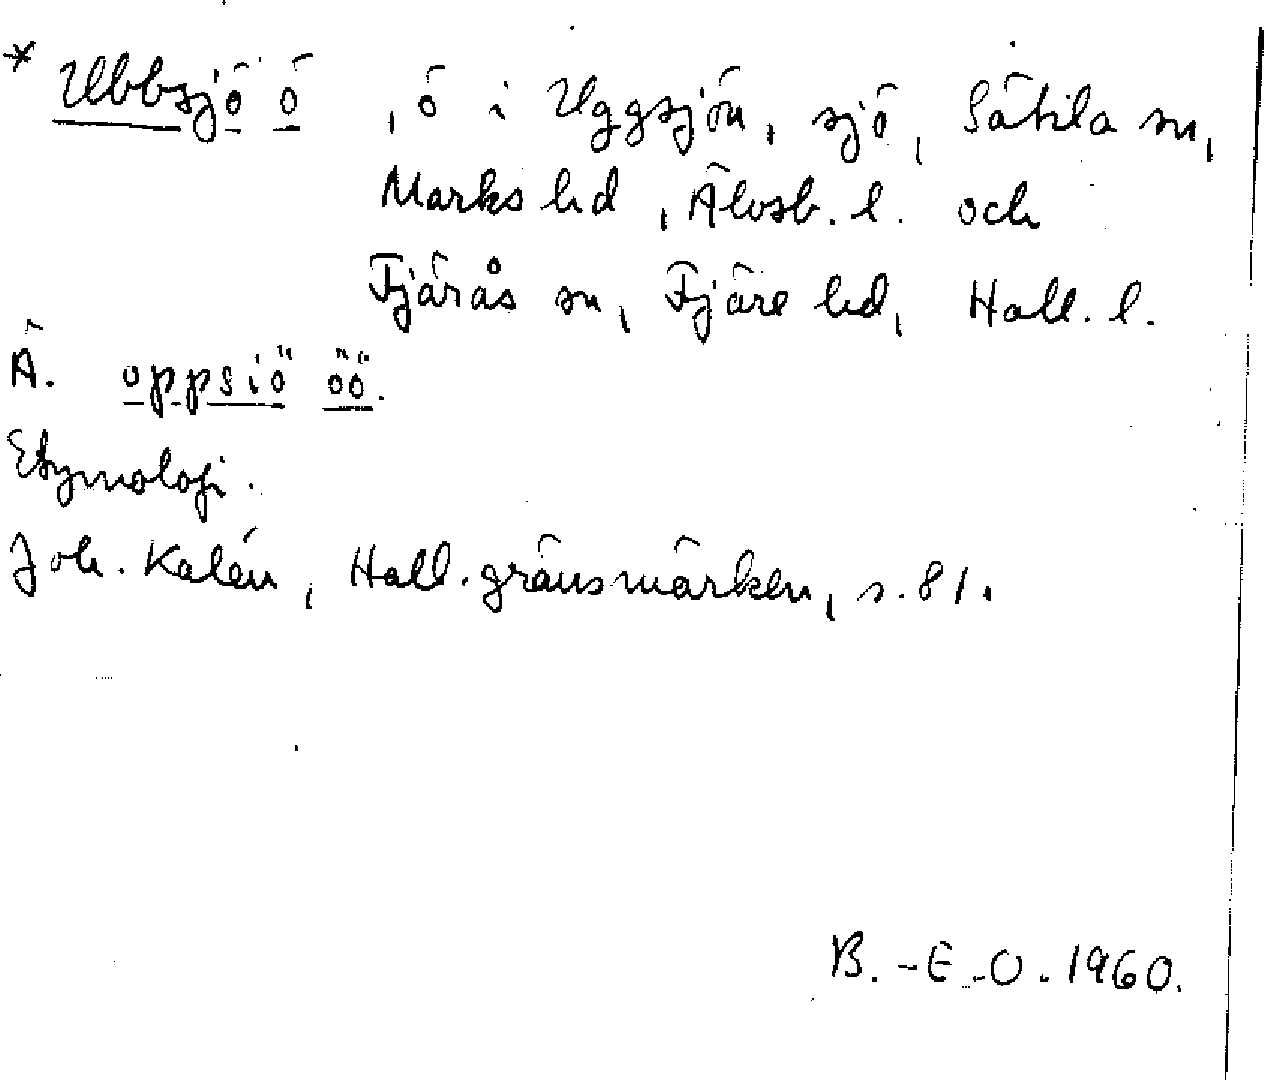 * Ubbsjö ö , ö i Uggsjön, sjö, Sätila sn,
Marks hd, Älvsb. l. och
Fjärås sn, Fjäre hd, Hall. l.
Ä. oppsiö öö.
Etymologi.
Joh. Kalén, Hall. gränsmärken, s. 81.
B.-E.O. 1960.